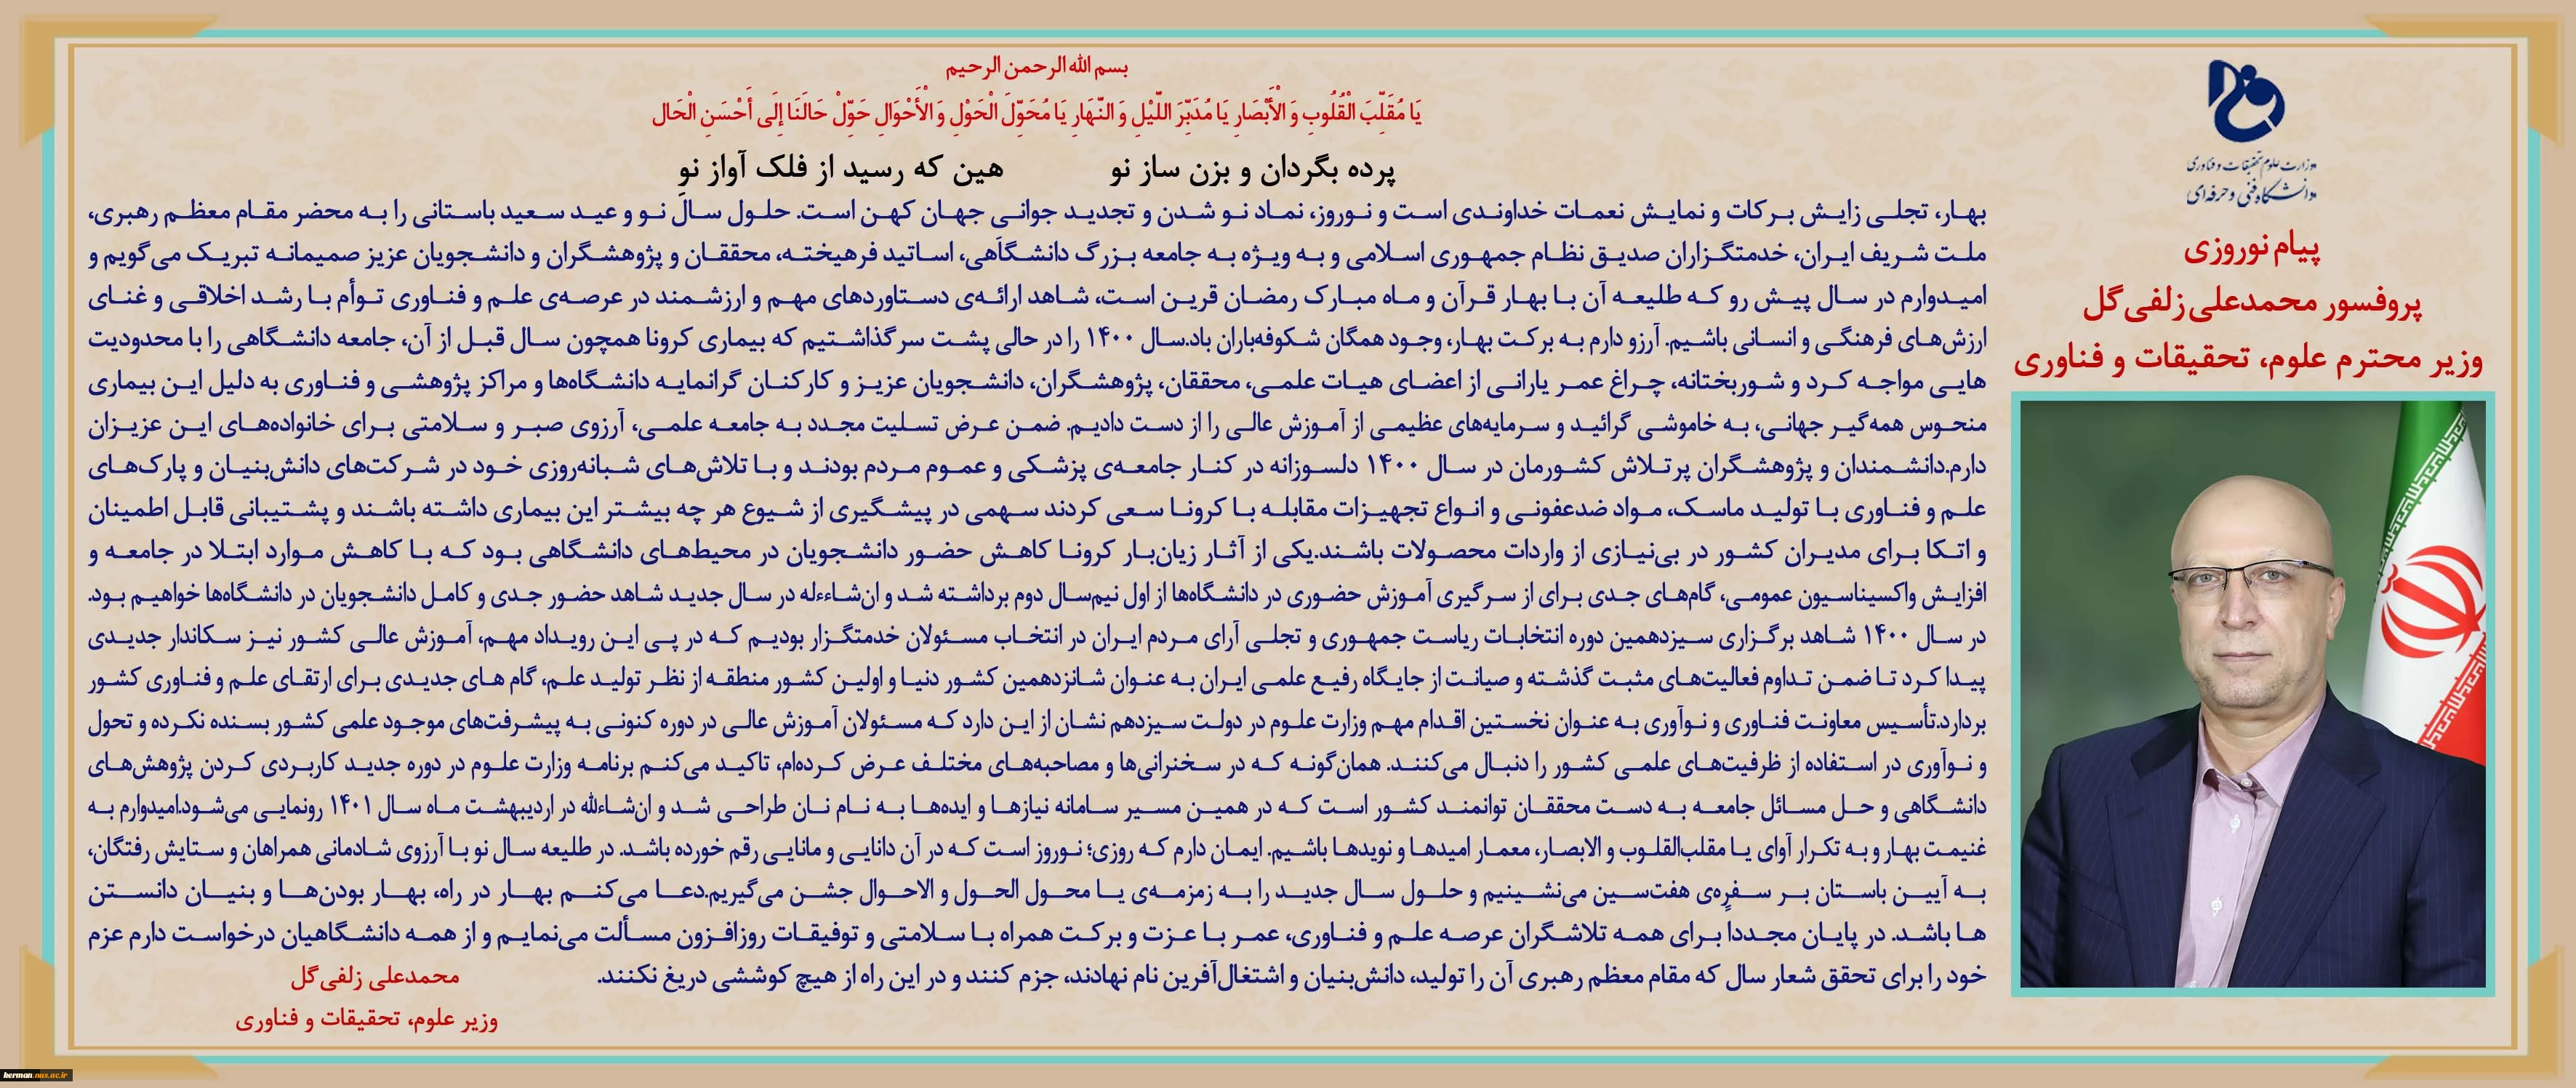 بسم الله الرحمن الرحیم
یَا مُقَلِّبَ الْقُلُوبِ وَ الْأَبْصَارِ یَا مُدَبِّرَ اللَّیْلِ وَ النَّهَارِ یَا مُحَوِّلَ الْحَوْلِ وَ الْأَحْوَالِ حَوِّلْ حَالَنَا إِلَی أَحْسَنِ الْحَالِ
پرده بگردان و بزن ساز نو هین که رسید از فلک آواز نو
بهار، تجلی زایش برکات و نمایش نعمات خداوندی است و نوروز، نماد نو شدن و تجدید جوانی جهان کهن است. حلول سال نو و عید سعید باستانی را به محضر مقام معظم رهبری،
ملت شریف ایران، خدمتگزاران صدیق نظام جمهوری اسلامی و به ویژه به جامعه بزرگ دانشگاهی، اساتید فرهیخته، محققان و پژوهشگران و دانشجویان عزیز صمیمانه تبریک می‌گویم و
امیدوارم در سال پیش رو که طلیعه آن با بهار قرآن و ماه مبارک رمضان قرین است، شاهد ارائه‌ی دستاوردهای مهم و ارزشمند در عرصه‌ی علم و فناوری توأم با رشد اخلاقی و غنای
ارزش‌های فرهنگی و انسانی باشیم. آرزو دارم به برکت بهار، وجود همگان شکوفه‌باران باد.سال ۱۴۰۰ را در حالی پشت سر گذاشتیم که بیماری کرونا همچون سال قبل از آن، جامعه دانشگاهی را با محدودیت
هایی مواجه کرد و شوربختانه، چراغ عمر یارانی از اعضای هیات علمی، محققان، پژوهشگران، دانشجویان عزیز و کارکنان گرانمایه دانشگاه‌ها و مراکز پژوهشی و فناوری به دلیل این بیماری
منحوس همه‌گیر جهانی، به خاموشی گرائید و سرمایه‌های عظیمی از آموزش عالی را از دست دادیم. ضمن عرض تسلیت مجدد به جامعه علمی، آرزوی صبر و سلامتی برای خانواده‌های این عزیزان
دارم.دانشمندان و پژوهشگران پرتلاش کشورمان در سال ۱۴۰۰ دلسوزانه در کنار جامعه‌ی پزشکی و عموم مردم بودند و با تلاش‌های شبانه‌روزی خود در شرکت‌های دانش‌بنیان و پارک‌های
علم و فناوری با تولید ماسک، مواد ضدعفونی و انواع تجهیزات مقابله با کرونا سعی کردند سهمی در پیشگیری از شیوع هر چه بیشتر این بیماری داشته باشند و پشتیبانی قابل اطمینان
و اتکا برای مدیران کشور در بی‌نیازی از واردات محصولات باشند.یکی از آثار زیان‌بار کرونا کاهش حضور دانشجویان در محیط‌های دانشگاهی بود که با کاهش موارد ابتلا در جامعه و
افزایش واکسیناسیون عمومی، گام‌های جدی برای از سرگیری آموزش حضوری در دانشگاه‌ها از اول نیم‌سال دوم برداشته شد و ان‌شاءءله در سال جدید شاهد حضور جدی و کامل دانشجویان در دانشگاه‌ها خواهیم بود.
در سال ۱۴۰۰ شاهد برگزاری سیزدهمین دوره انتخابات ریاست جمهوری و تجلی آرای مردم ایران در انتخاب مسئولان خدمتگزار بودیم که در پی این رویداد مهم، آموزش عالی کشور نیز سکاندار جدیدی
پیدا کرد تا ضمن تداوم فعالیت‌های مثبت گذشته و صیانت از جایگاه رفیع علمی ایران به عنوان شانزدهمین کشور دنیا و اولین کشور منطقه از نظر تولید علم، گام های جدیدی برای ارتقای علم و فناوری کشور
بردارد.تأسیس معاونت فناوری و نوآوری به عنوان نخستین اقدام مهم وزارت علوم در دولت سیزدهم نشان از این دارد که مسئولان آموزش عالی در دوره کنونی به پیشرفت‌های موجود علمی کشور بسنده نکرده و تحول
و نوآوری در استفاده از ظرفیت‌های علمی کشور را دنبال می‌کنند. همان‌گونه که در سخنرانی‌ها و مصاحبه‌های مختلف عرض کرده‌ام، تاکید می‌کنم برنامه وزارت علوم در دوره جدید کاربردی کردن پژوهش‌های
دانشگاهی و حل مسائل جامعه به دست محققان توانمند کشور است که در همین مسیر سامانه نیازها و ایده‌ها به نام نان طراحی شد و ان‌شاءلله در اردیبهشت ماه سال ۱۴۰۱ رونمایی می‌شود.امیدوارم به
غنیمت بهار و به تکرار آوای یا مقلب‌القلوب و الابصار، معمار امیدها و نویدها باشیم. ایمان دارم که روزی؛ نوروز است که در آن دانایی و مانایی رقم خورده باشد. در طلیعه سال نو با آرزوی شادمانی همراهان و ستایش رفتگان،
به آیین باستان بر سفره‌ی هفت‌سین می‌نشینیم و حلول سال جدید را به زمزمه‌ی یا محول الحول و الاحوال جشن می‌گیریم.دعا می‌کنم بهار در راه، بهار بودن‌ها و بنیان دانستن
ها باشد. در پایان مجددا برای همه تلاشگران عرصه علم و فناوری، عمر با عزت و برکت همراه با سلامتی و توفیقات روزافزون مسألت می‌نمایم و از همه دانشگاهیان درخواست دارم عزم
خود را برای تحقق شعار سال که مقام معظم رهبری آن را تولید، دانش‌بنیان و اشتغال‌آفرین نام نهادند، جزم کنند و در این راه از هیچ کوششی دریغ نکنند.
محمدعلی زلفی‌گل
وزیر علوم، تحقیقات و فناوری
وزارت علوم تحقیقات و فناوری
دانشگاه فنی و حرفه‌ای
پیام نوروزی
پروفسور محمدعلی زلفی‌گل
وزیر محترم علوم، تحقیقات و فناوری
kerman.nus.ac.ir